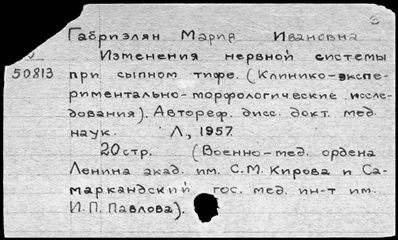 Габриэлян Мария Ивановна
Изменения нервной системы
50813
при сыпном тифе. (Клинико-экспе-
риментально-морфологические иссле-
дования). Автореф. дисс. докт. мед.
наук. Л., 1957.
20 стр. (Военно-мед. ордена
Ленина акад. им. С.М. Кирова и Са-
маркандский гос. мед. ин-т им.
И.П. Павлова).